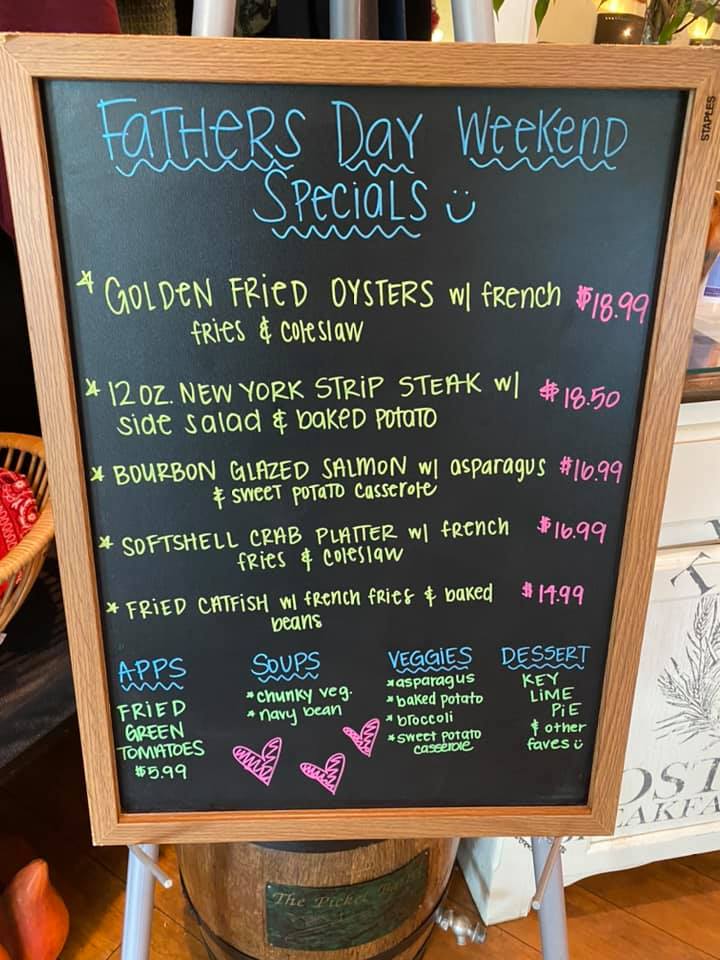 STAPLES
FATHERS DAY WEEKEND
SPECIALS
* GOLDEN FRIED OYSTERS w/ french $18.99
fries & coleslaw
* 12 OZ. NEW YORK STRIP STEAK w/ $18.50
side salad & baked potato
* BOURBON GLAZED SALMON w/ asparagus $16.99
& sweet potato casserole
* SOFTSHELL CRAB PLATTER w/ french $16.99
fries & coleslaw
* FRIED CATFISH w/ french fries & baked $14.99
beans
APPS
FRIED
GREEN
TOMATOES
$5.99
SOUPS
* chunky veg.
* navy bean
VEGGIES
* asparagus
* baked potato
* broccoli
* sweet potato
casserole
DESSERT
KEY
LIME
PIE
& other
faves
The Picket